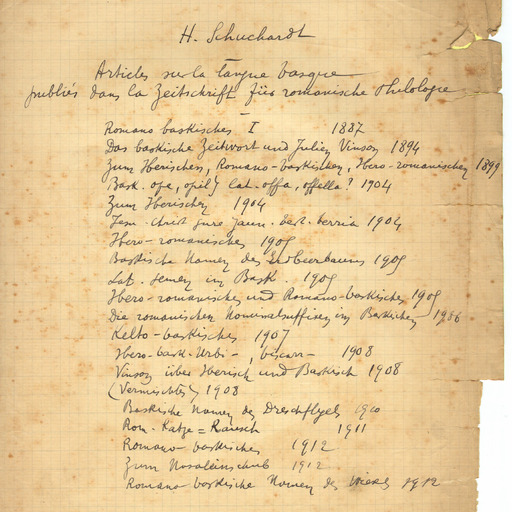 H. Schuchardt
Articles sur la langue basque
publiés dans la Zeitschrift für romanische Philologie
Romano baskisches I 1887
Das baskische Zeitwort und Julien Vinson 1894
Zum Iberischen, Romano-baskischen, Ibero-romanischen 1899
Bask. ope, opil lat. offa, offella? 1904
Zum Iberischen 1904
Jesu-Christ gure Jaun. berri 1904
Ibero-romanisches 1905
Baskische Namen des Erdbeerbaums 1905
Lat. semen im Bask. 1905
Ibero-romanisches und Romano-baskisches 1905
Die romanischen Nominalsuffixe im Baskischen 1906
Kelto-baskisches 1907
Ibero-bask. Urbi-, biscarr- 1908
Vinson über Iberisch und Baskisch 1908
(Vermischtes) 1908
Baskische Namen des Dreschflegels 1910
Rom. Katze = Rausch 1911
Romano-baskisches 1912
Zum Nasaleinschub 1912
Romano baskische Namen des Wiesels 1912